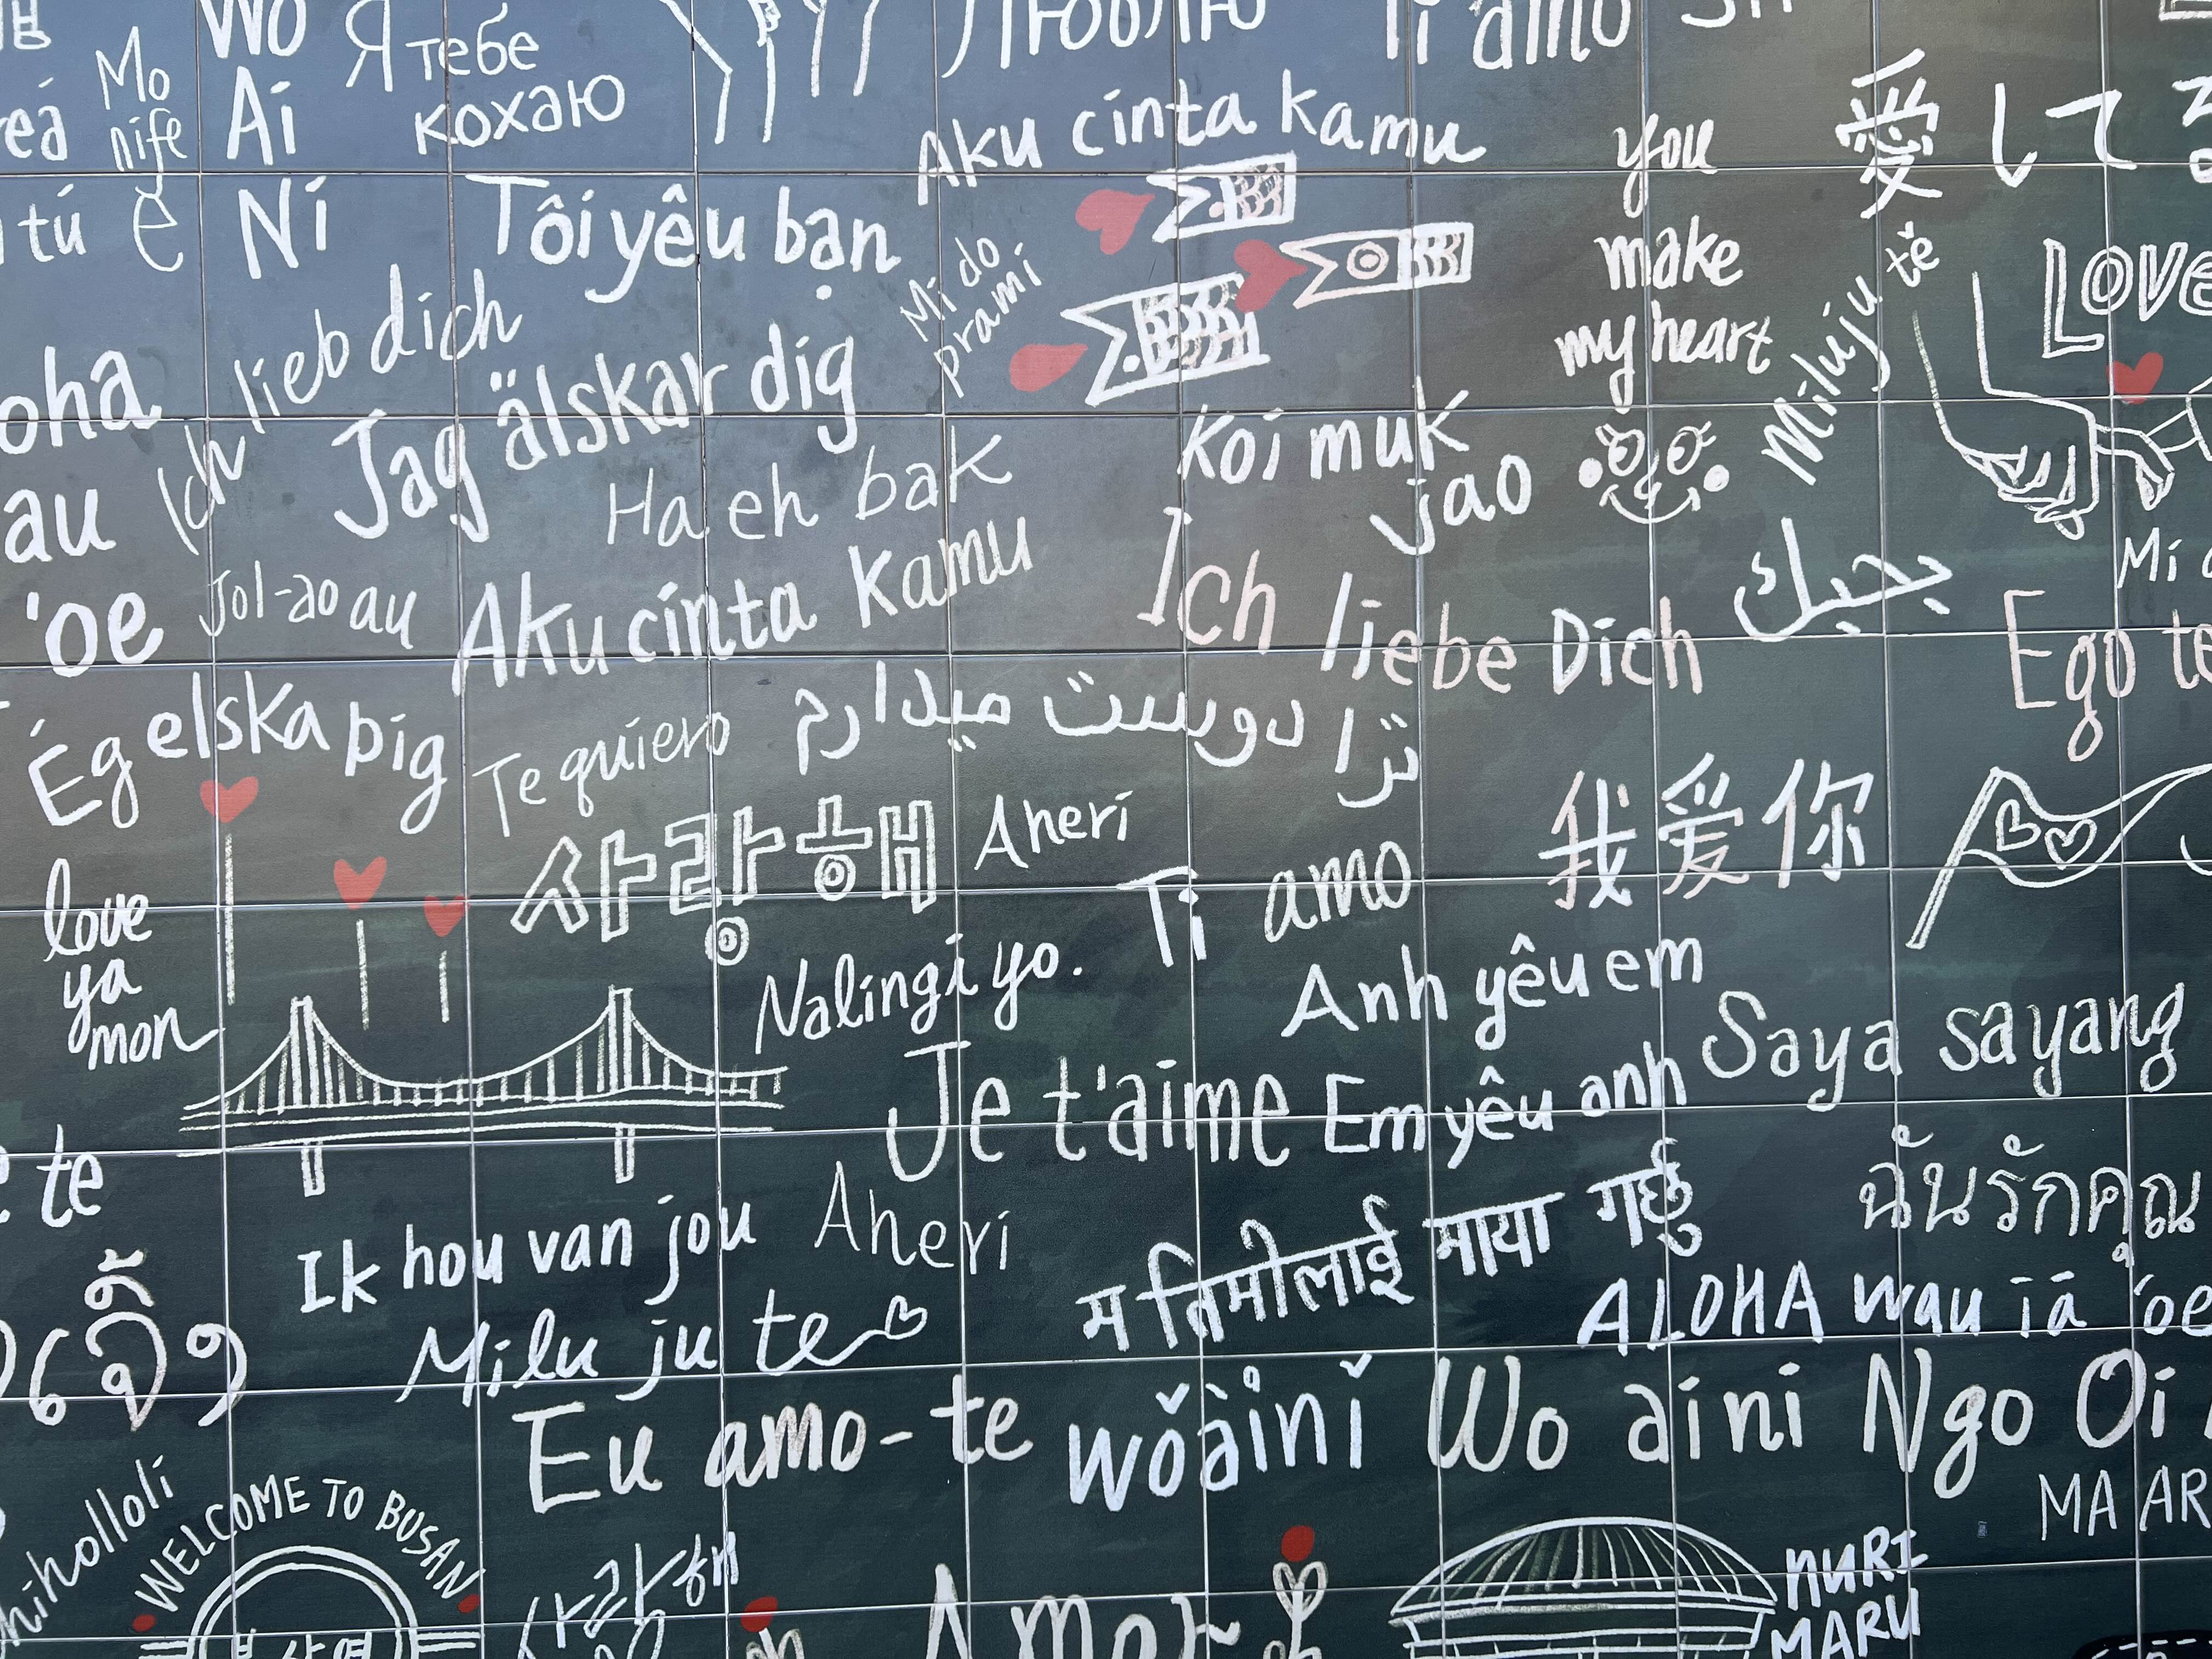 Wo
Ai
Ní
Mo
nífe
é
Я тебе
кохаю
Ti amo
Aku cinta kamu
you
make
my heart
愛して
tú
Tôi yêu bạn
Mi do
prami
Miluju tě
LOVE
Ich lieb dich
Jag älskar dig
oha
au
'oe
Ha eh bak
Koi muk
jao
Jol-ao au
Aku cinta kamu
Ich liebe Dich
بحبك
Mi
Ego te
Ég elska þig
Te quiero
ترا دوست میدارم
사랑해
Aheri
Ti amo
我爱你
love
ya
mon
Nalingi yo.
Anh yêu em
Saya sayang
Je t'aime
Em yêu anh
te
Ik hou van jou
Aheri
म तिमीलाई माया गर्छु
ฉันรักคุณ
Milu ju te
ALOHA wau iā 'oe
Eu amo-te
wǒàinǐ
Wo ai ni
Ngo Oi
MA AR
hiholloli
WELCOME TO BUSAN
사랑해
Amor
NURI
MARU